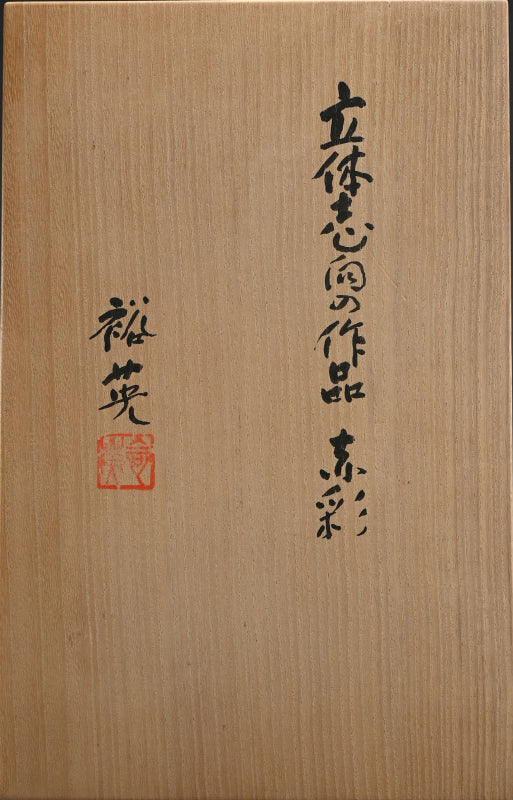 立体志向の作品 赤彩
裕英